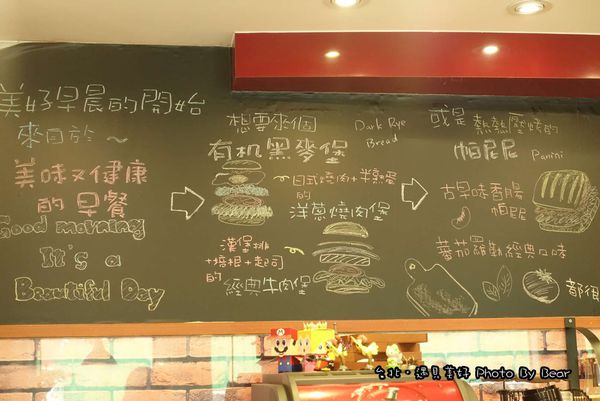 美好早晨的開始
來自於~
美味又健康
的早餐
Good morning
It's a
Beautiful Day
想要來個
Dark Rye
Bread
有机黑麥堡
日式燒肉+半熟蛋
的
洋蔥燒肉堡
漢堡排
+培根+起司
的
經典牛肉堡
或是熱熱壓烤的
帕尼尼 Panini
古早味香腸
帕尼尼
蕃茄羅勒經典口味
都很
台北·遇見美好 Photo By Bear